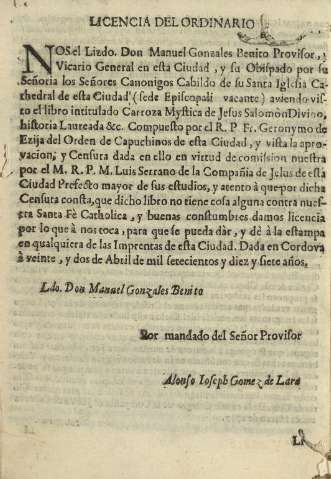 LICENCIA DEL ORDINARIO
NOS el Lizdo. Don Manuel Gonzales Benito Provisor, y
Vicario General en esta Ciudad, y su Obispado por su
Señoria los Señores Canonigos Cabildo de su Santa Iglesia Ca-
thedral de esta Ciudad (sede Episcopali vacante) aviendo vis-
to el libro intitulado Carroza Mystica de Jesus Salomon Divino,
historia Laureada &c. Compuesto por el R. P. Fr. Geronymo de
Ezija del Orden de Capuchinos de esta Ciudad, y vista la apro-
vacion, y Censura dada en ello en virtud de comision nuestra
por el M. R. P. M. Luis Serrano de la Compañia de Jesus de esta
Ciudad Prefecto mayor de sus estudios, y atento à que por dicha
Censura consta, que dicho libro no tiene cosa alguna contra nues-
tra Santa Fè Catholica, y buenas constumbres damos licencia
por lo que à nos toca, para que se pueda dàr, y dè à la estampa
en qualquiera de las Imprentas de esta Ciudad. Dada en Cordova
à veinte, y dos de Abril de mil setecientos y diez y siete años.
Ldo. Don Manuel Gonzales Benito
Por mandado del Señor Provisor
Alonso Ioseph Gomez de Lara